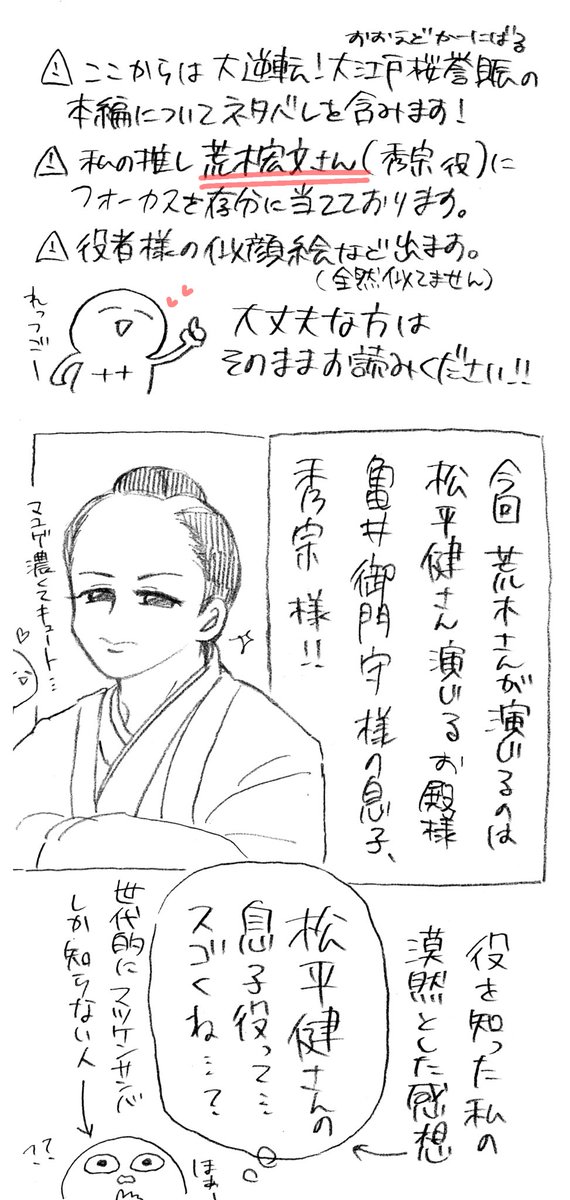 おおえどかーにばる
⚠ ここからは 大逆転!大江戸桜誉賑の
本編についてネタバレを含みます!
⚠ 私の推し 荒木宏文さん(秀宗役)に
フォーカスを存分に当てております。
⚠ 役者様の似顔絵など出ます。
(全然似てません)
れっつごー
大丈夫な方は
そのままお読みください!!
今回 荒木さんが演じるのは
松平健さん演じるお殿様
亀井御門守様の息子、
秀宗様!!
マユゲ濃くてキュート…
役を知った私の
漠然とした感想
松平健さんの
息子役って…
スゴくね…?
世代的にマツケンサンバ
しか知らない人
!?
ほわー